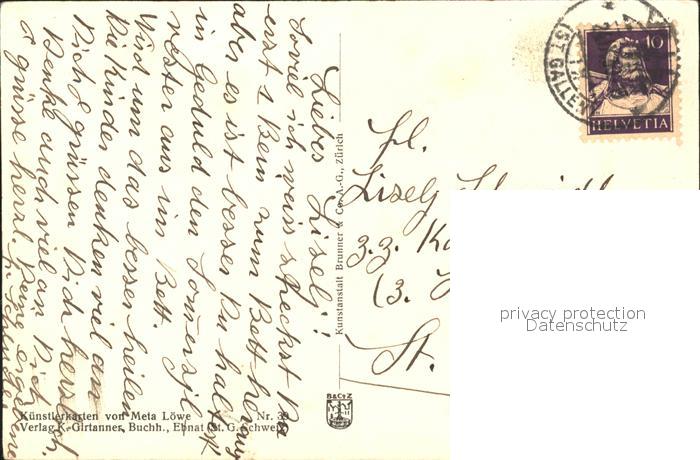 Liebes Liselj!
Soviel ich weiss streckst Du
erst 1 Bein zum Bett heraus
aber es ist besser Du haltest
in Geduld den
aus im Bett.
Wird um das besser heilen
Die Kinder denken viel an
Dich & grüssen Dich herzlich.
Denke auch viel an Dich
& grüsse herzl. Deine
Künstlerkarten von Meta Löwe Nr. 39
Verlag K. Girtanner, Buchh., Ebnat (St. G. Schweiz)
Kunstanstalt Brunner & Co. A.-G., Zürich
B&CºZ
10
HELVETIA
(ST. GALLEN)
Liselj
z.Z.
(3.
St.
privacy protection
Datenschutz